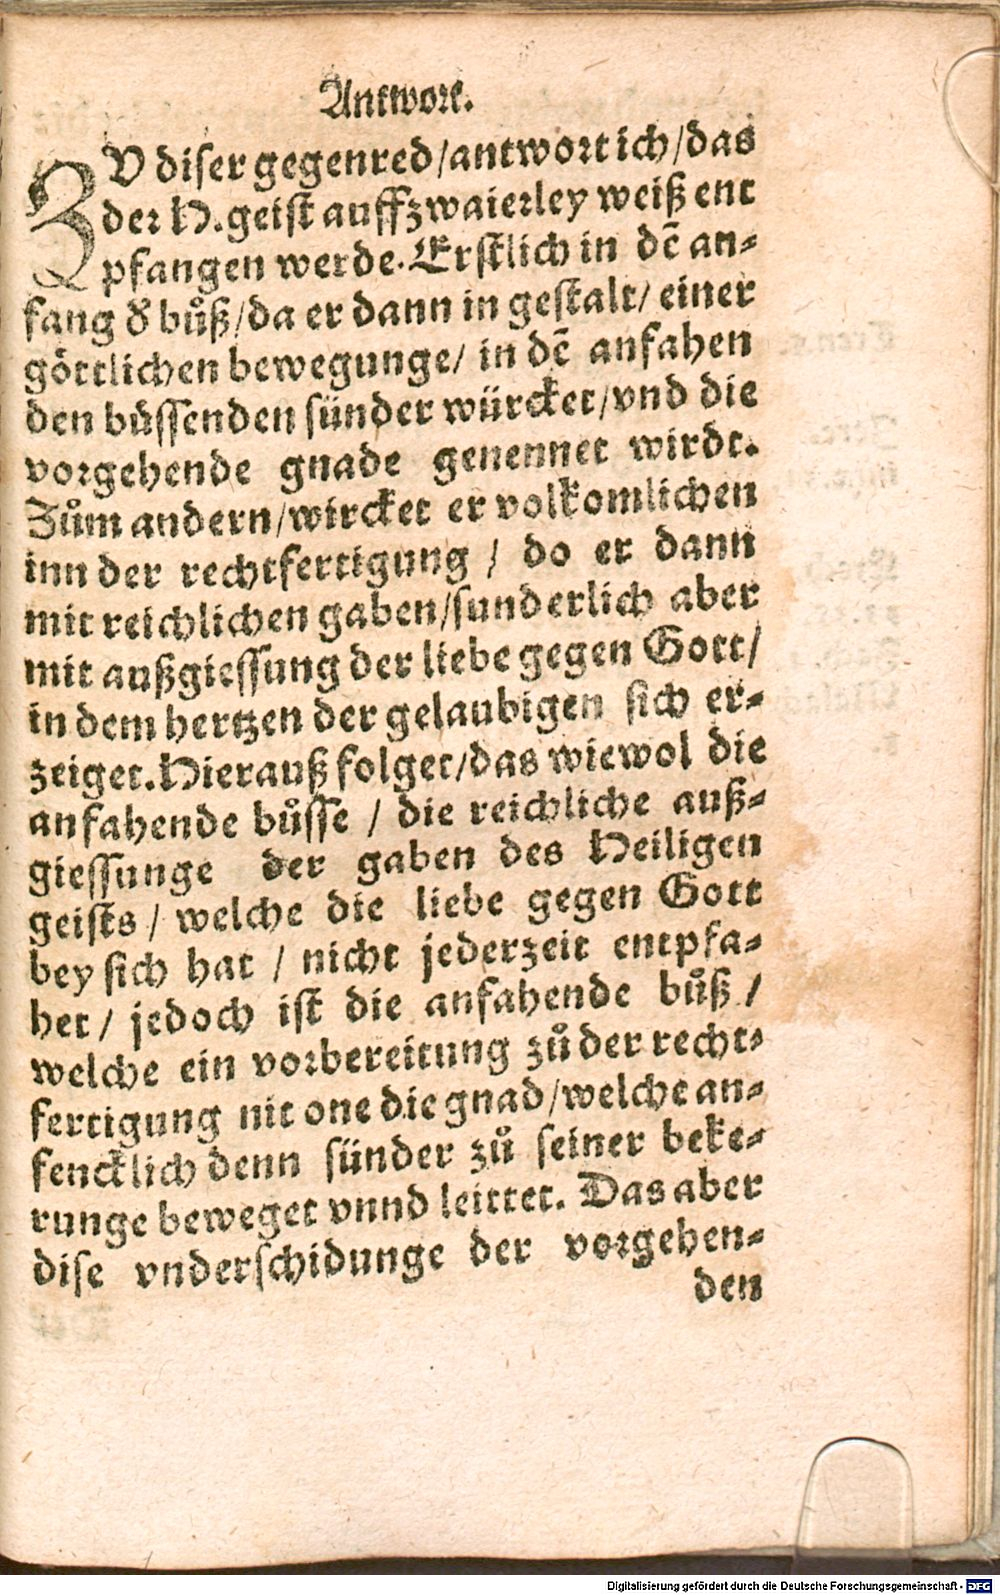 Antwort.
ZV diser gegenred/antwort ich/das
der H. geist auff zwaierley weiß ent
pfangen werde. Erstlich in dē an-
fang d͛ bůß/da er dann in gestalt/ einer
göttlichen bewegunge/ in dē anfahen
den büssenden sünder würcket/vnd die
vorgehende gnade genennet wirdt.
Zům andern/wircket er volkomlichen
inn der rechtfertigung / do er dann
mit reichlichen gaben/sunderlich aber
mit außgiessung der liebe gegen Gott/
in dem hertzen der gelaubigen sich er-
zeiget. Hierauß folget/das wiewol die
anfahende bůsse / die reichliche auß-
giessunge der gaben des Heiligen
geists / welche die liebe gegen Gott
bey sich hat / nicht jederzeit entpfa-
het / jedoch ist die anfahende bůß /
welche ein vorbereitung zů der recht-
fertigung nit one die gnad/welche an-
fencklich denn sünder zů seiner beke-
runge beweget vnnd leittet. Das aber
dise vnderschidunge der vorgehen-
den
Digitalisierung gefördert durch die Deutsche Forschungsgemeinschaft - DFG